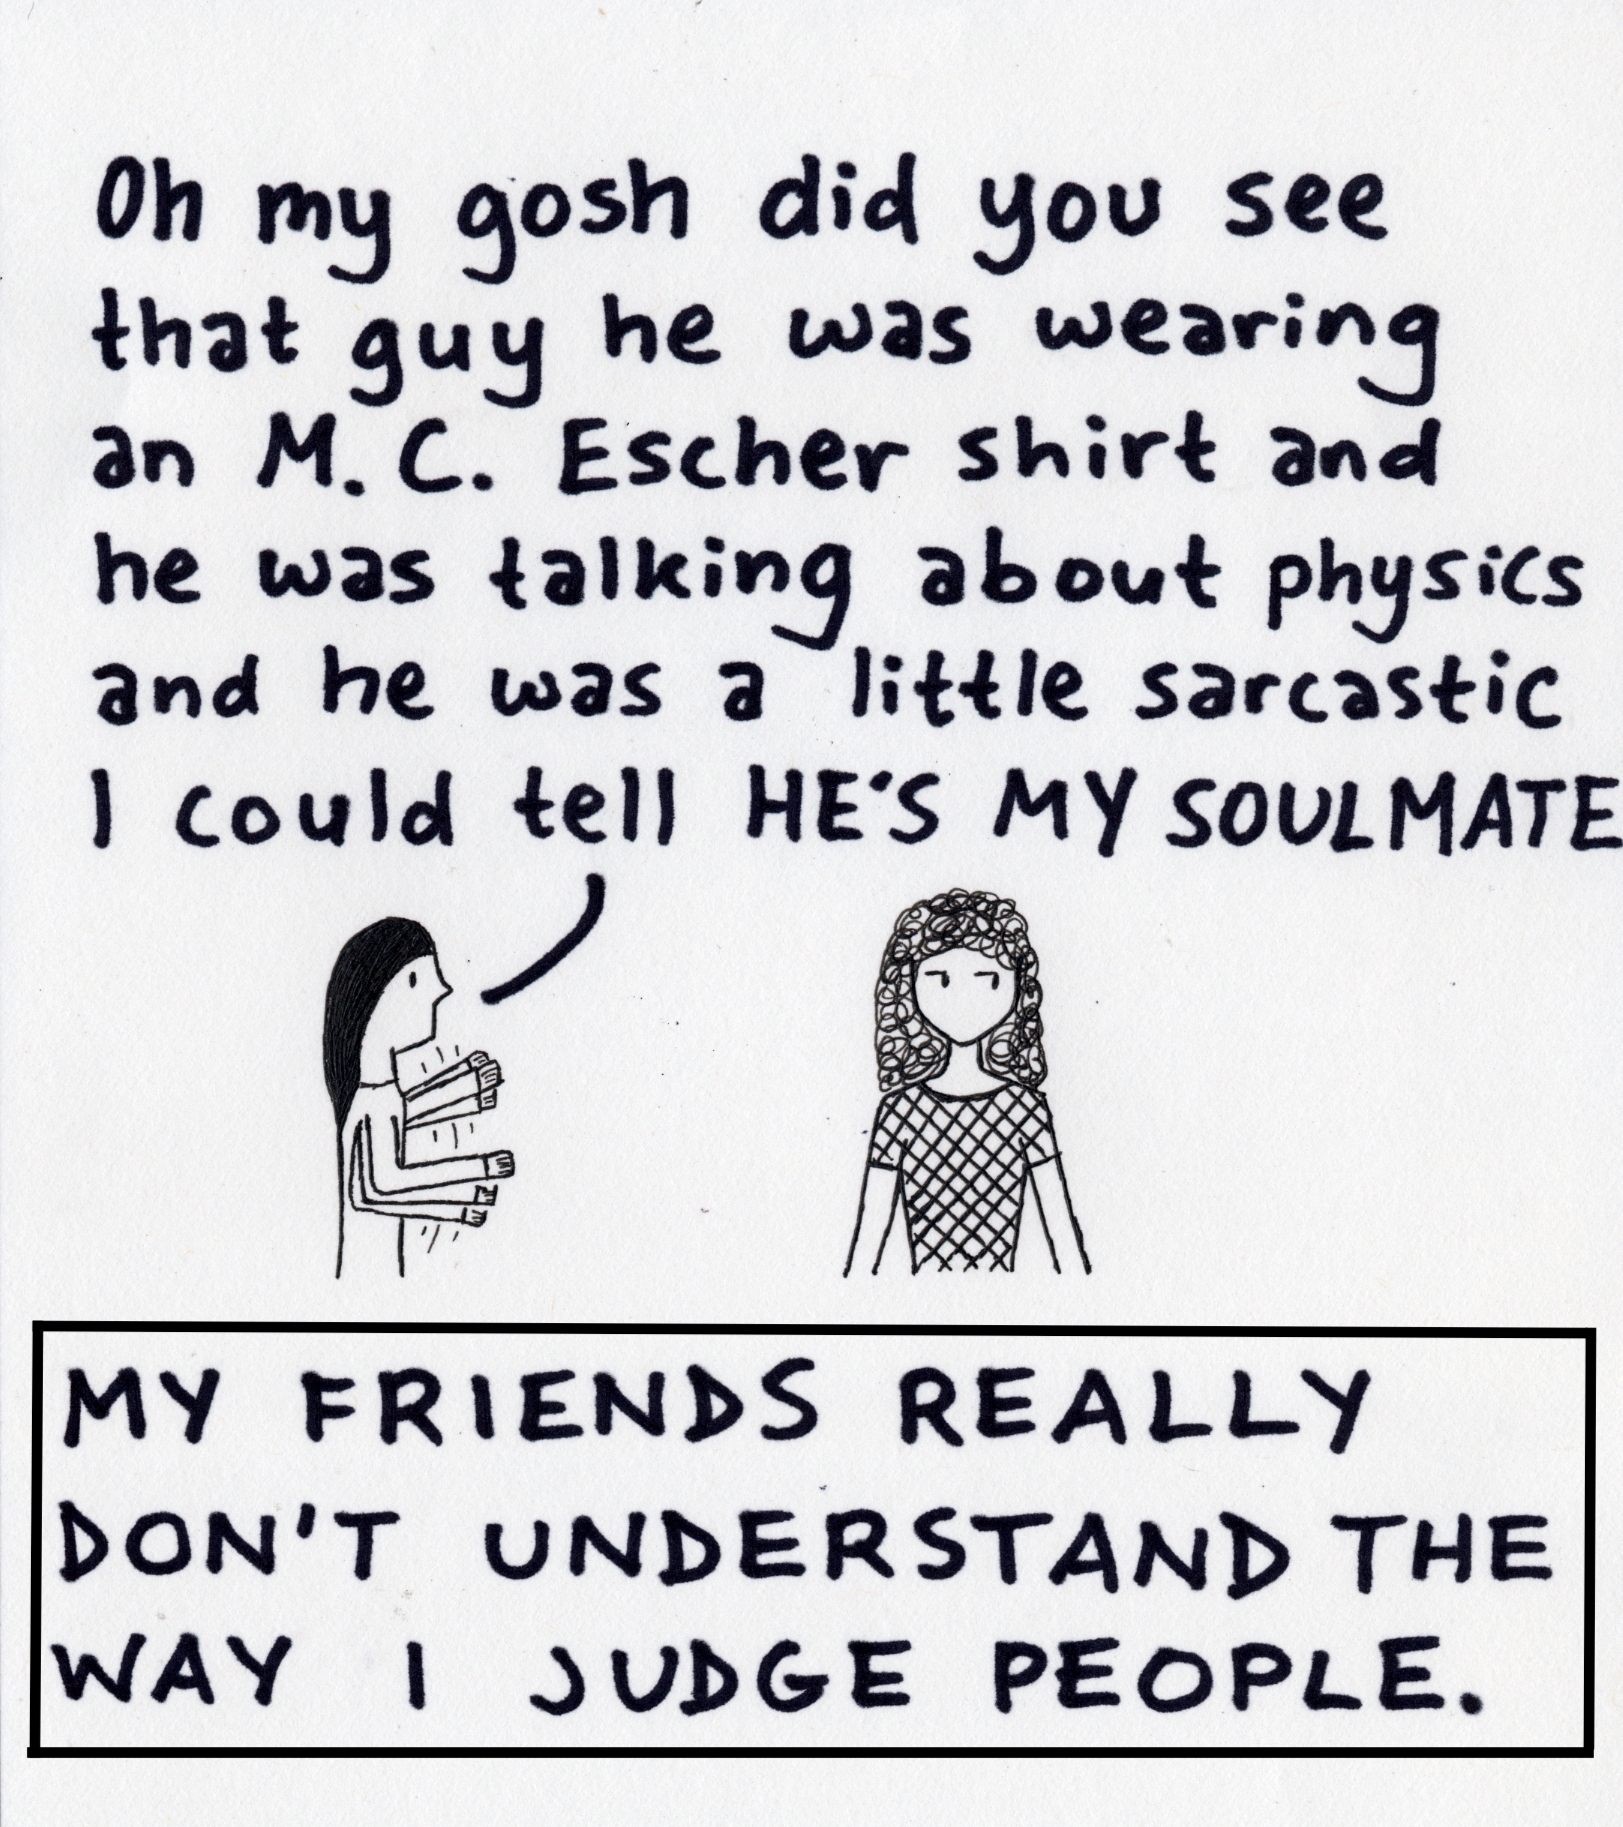 Oh my gosh did you see
that guy he was wearing
an M.C. Escher shirt and
he was talking about physics
and he was a little sarcastic
I could tell HE'S MY SOULMATE
MY FRIENDS REALLY
DON'T UNDERSTAND THE
WAY I JUDGE PEOPLE.